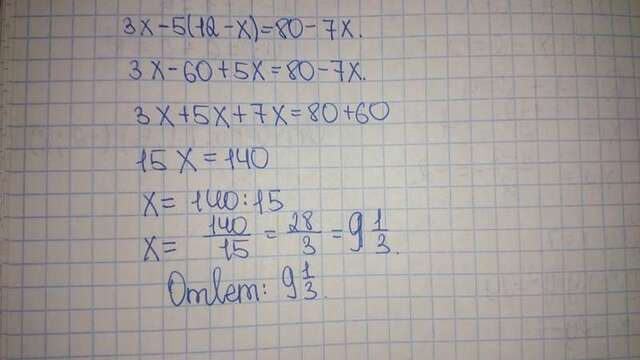 3x-5(12-x)=80-7x.
3x-60+5x=80-7x.
3x+5x+7x=80+60
15x=140
x=140:15
x=140/15=28/3=9 1/3.
Ответ: 9 1/3.